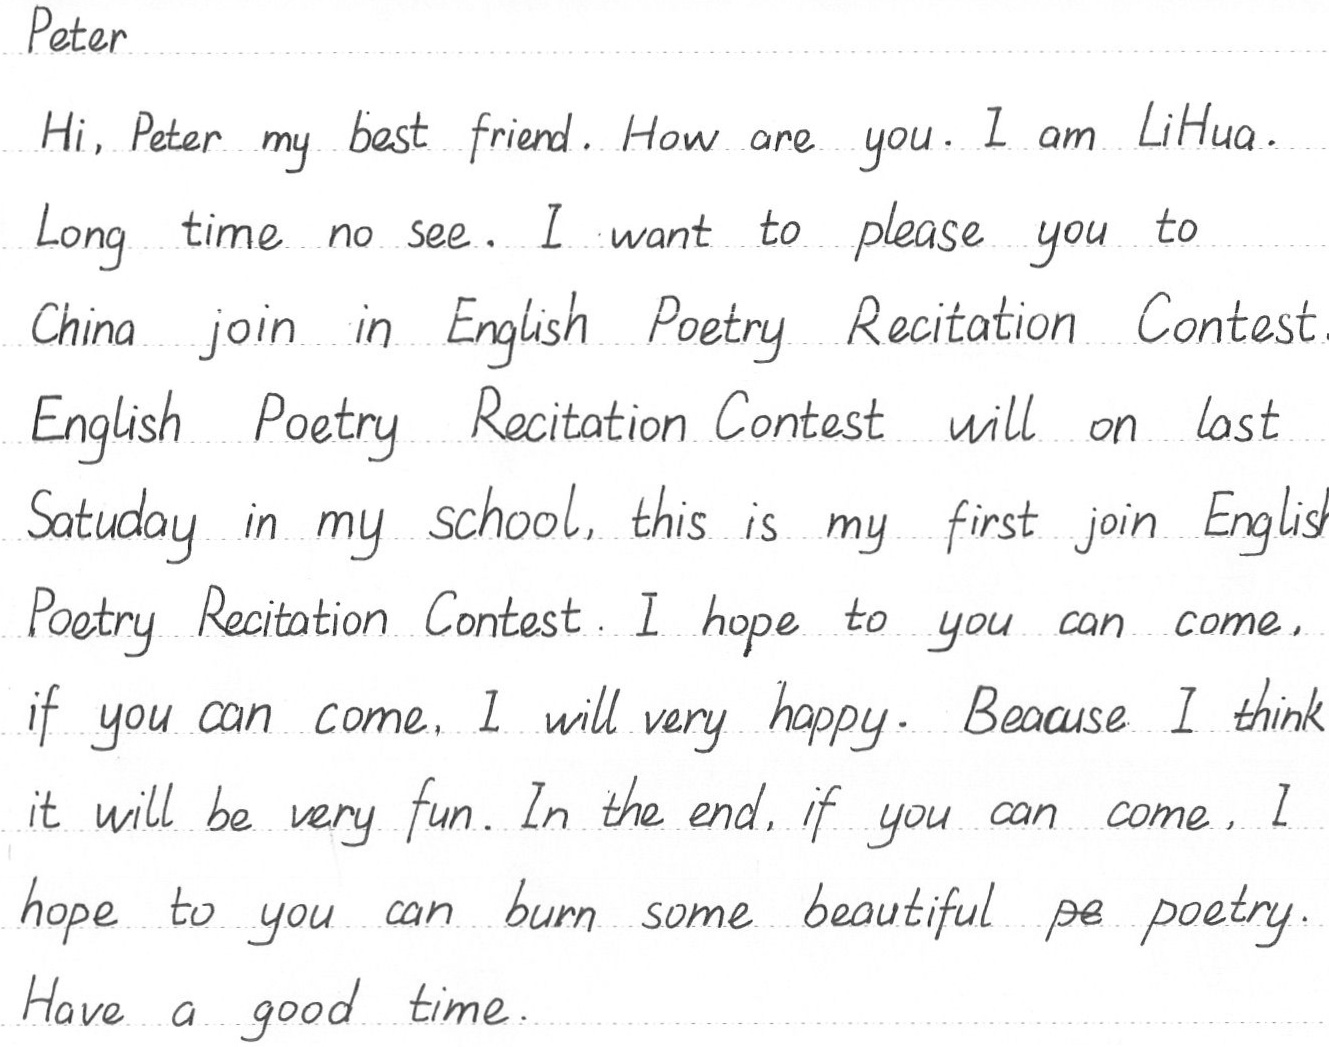 Peter
Hi, Peter my best friend. How are you. I am LiHua.
Long time no see. I want to please you to
China join in English Poetry Recitation Contest.
English Poetry Recitation Contest will on last
Satuday in my school, this is my first join English
Poetry Recitation Contest. I hope to you can come,
if you can come, I will very happy. Beacuse I think
it will be very fun. In the end, if you can come, I
hope to you can burn some beautiful pe poetry.
Have a good time.